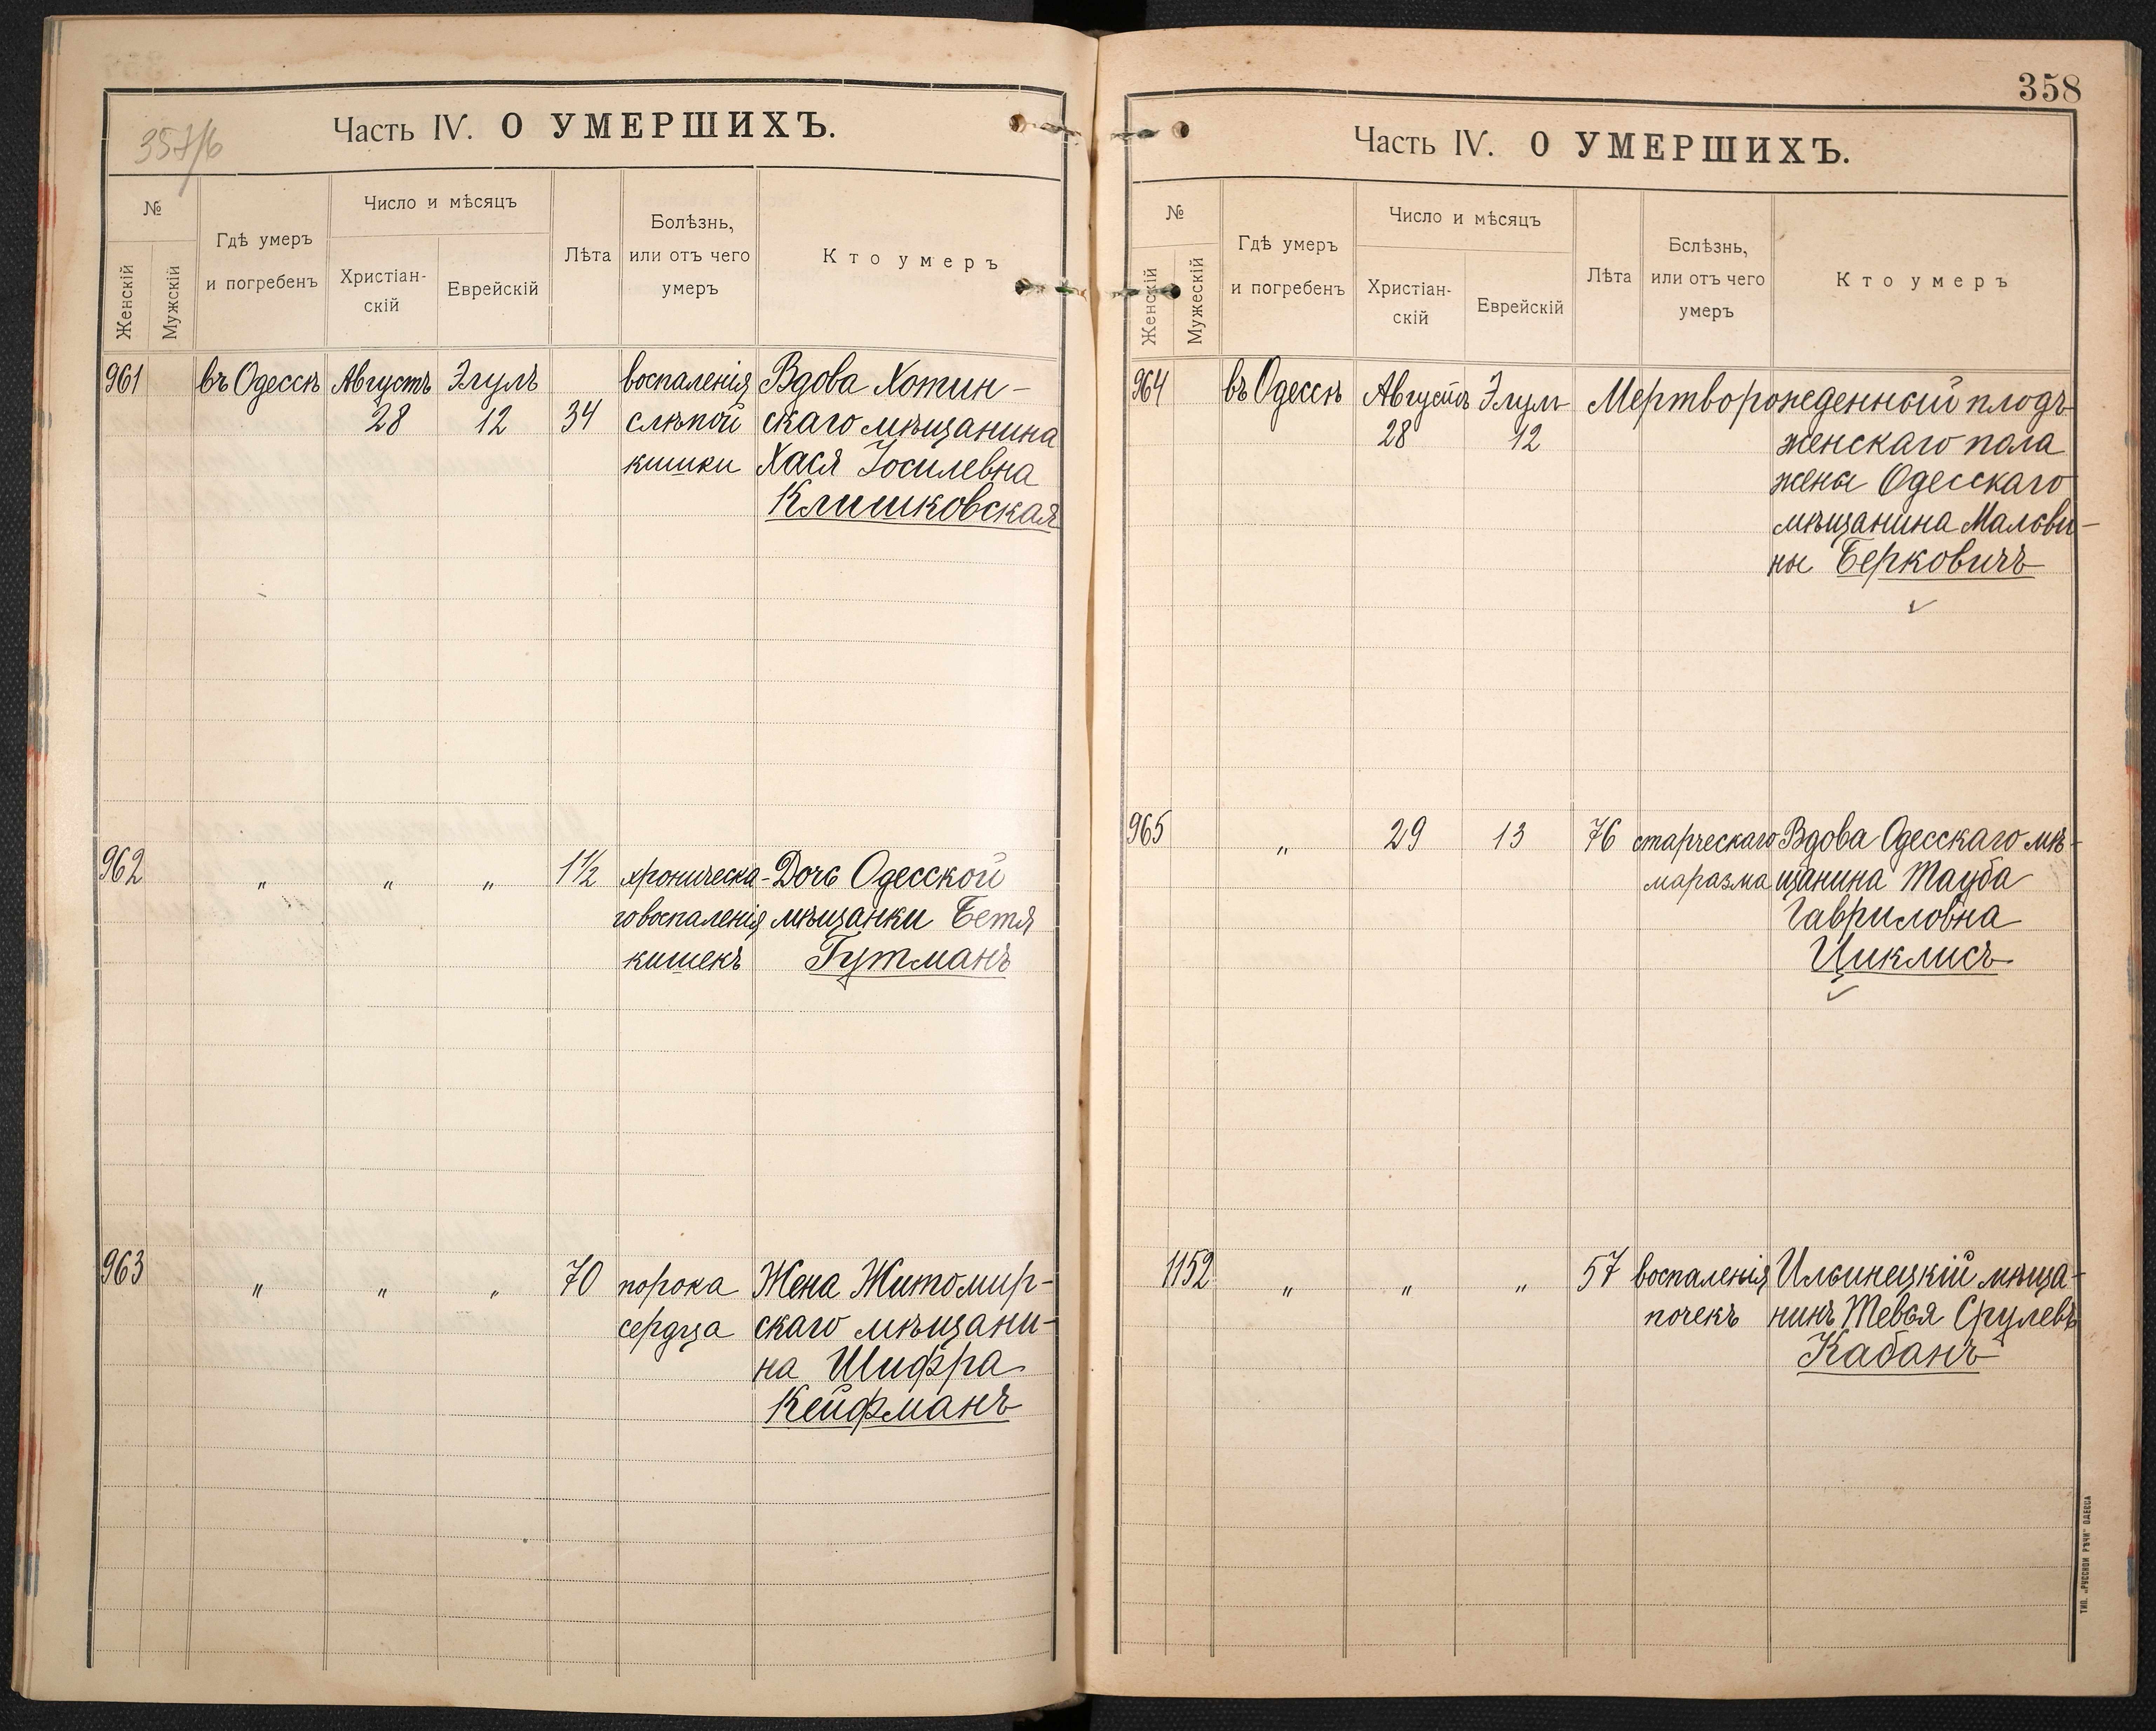 357/б
Часть IV. О УМЕРШИХЪ.
№
Женскій
Мужскій
Гдѣ умеръ
и погребенъ
Число и мѣсяцъ
Христіан-
скій
Еврейскій
Лѣта
Болѣзнь,
или отъ чего
умеръ
Кто умеръ
961 въ Одессѣ Августъ Элулъ воспаленія Вдова Хотин-
28 12 34 слѣпой скаго мѣщанина
кишки Хася Іосилевна
Клишковская
962 " " " 1½ хроническа- Дочь Одесской
го воспаленія мѣщанки Бетя
кишекъ Гутманъ
963 " " " 70 порока Жена Житомир-
сердца скаго мѣщани-
на Шифра
Кейфманъ
358
Часть IV. О УМЕРШИХЪ.
№
Женскій
Мужескій
Гдѣ умеръ
и погребенъ
Число и мѣсяцъ
Христіан-
скій
Еврейскій
Лѣта
Бслѣзнь,
или отъ чего
умеръ
Кто умеръ
964 въ Одессѣ Августъ Элулъ Мертворожденный плодъ
28 12 женскаго пола
жены Одесскаго
мѣщанина Малови-
ны Берковичъ
965 " 29 13 76 старческаго Вдова Одесскаго мѣ-
маразма щанина Тауба
Гавриловна
Циклисъ
1152 " " " 57 воспаленія Ильинецкій мѣща-
почекъ нинъ Тевья Срулевъ
Кабанъ
ТИП. „РУССКОЙ РѢЧИ" ОДЕССА